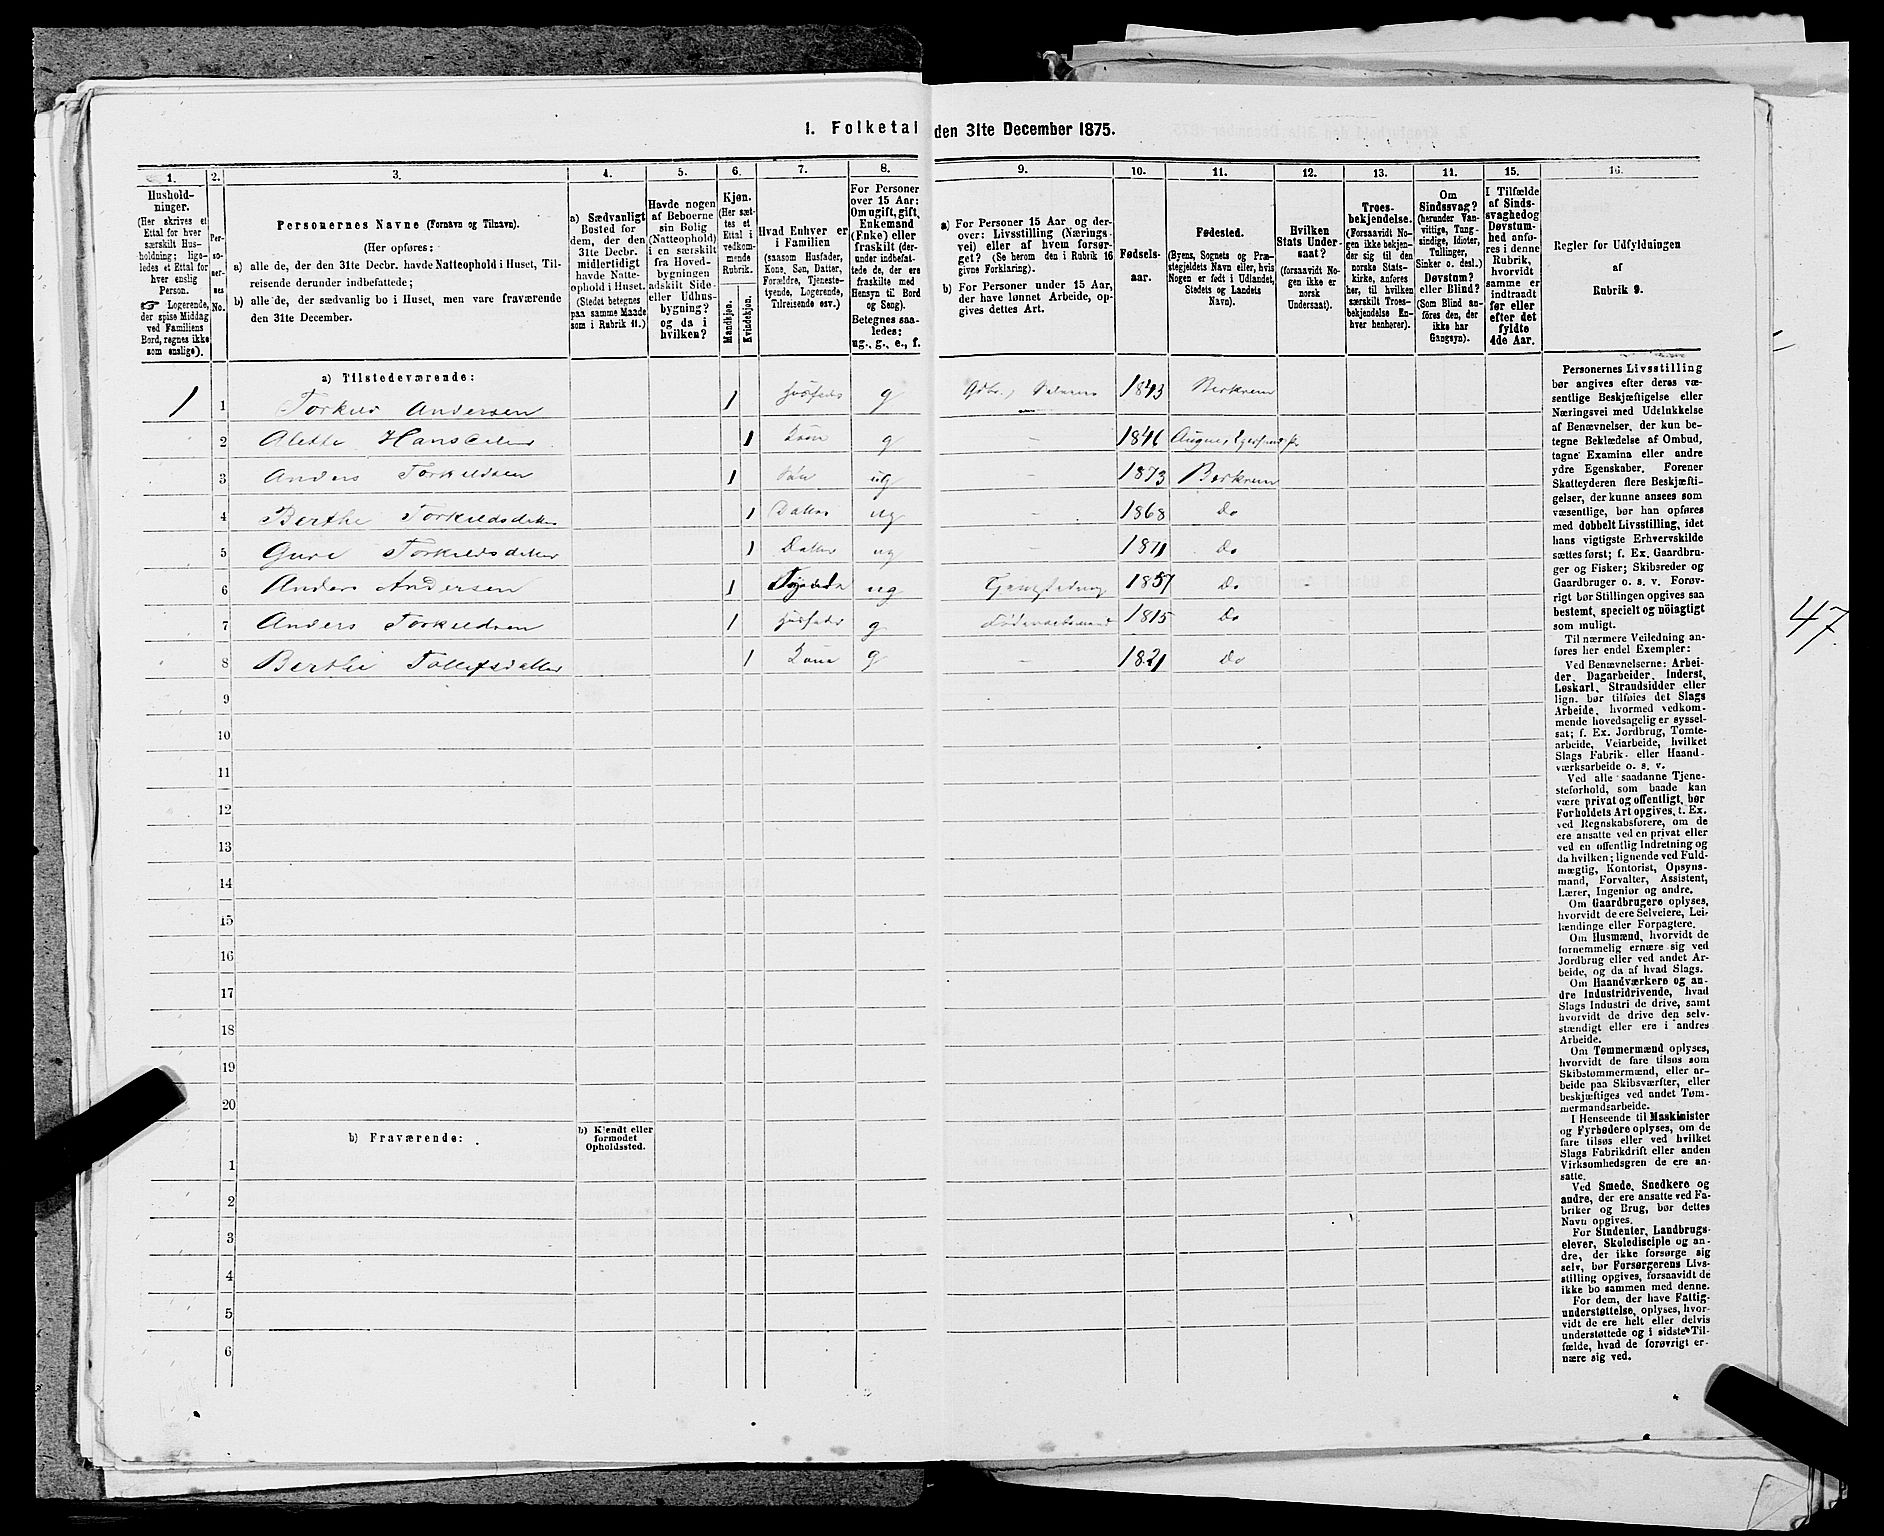 1. Folketal den 31te December 1875.
1. 2. 3. 4. 5. 6. 7. 8. 9. 10. 11. 12. 13. 14. 15. 16.
Husholdninger.
(Her skrives et
Ettal for hver
særskilt Husholdning;
ligeledes et Ettal for
hver enslig
Person.
☞ Logerende,
der spise Middag
ved Familiens
Bord, regnes ikke
som enslige).
Personernes No.
Personernes Navne (Fornavn og Tilnavn).
(Her opføres:
a) alle de, der den 31te Decbr. havde Natteophold i Huset, Tilreisende derunder indbefattede;
b) alle de, der sædvanlig bo i Huset, men vare fraværende
den 31te December.
a) Sædvanligt
Bosted for
dem, der den
31te Decbr.
midlertidigt
havde Natteophold i Huset.
(Stedet betegnes
paa samme Maade
som i Rubrik 11.)
Havde nogen
af Beboerne
sin Bolig
(Natteophold)
i en særskilt
fra Hovedbygningen
adskilt Side-
eller Udhusbygning?
og da i
hvilken?
Kjøn.
(Her sættes et
Ettal i
vedkommende
Rubrik.
Mandkjøn.
Kvindekjøn.
Hvad Enhver er
i Familien
(saasom Husfader,
Kone, Søn, Datter,
Forældre, Tjenestetyende, Logerende,
Tilreisende osv.)
For Personer
over 15 Aar:
Om ugift, gift,
Enkemand
(Enke) eller
fraskilt (derunder indbefattede de, der ere
fraskilte med
Hensyn til Bord
og Seng).
Betegnes saaledes:
ug., g., e., f.
a) For Personer 15 Aar og derover: Livsstilling (Næringsvei) eller af hvem forsørget? (Se herom den i Rubrik 16
givne Forklaring).
b) For Personer under 15 Aar,
der have lønnet Arbeide, opgives dettes Art.
Fødselsaar.
Fødested.
(Byens, Sognets og Præstegjeldets Navn eller, hvis
Nogen er født i Udlandet,
Stedets og Landets
Navn).
Hvilken
Stats Undersaat?
(forsaavidt Nogen ikke er
norsk
Undersaat).
Troesbekjendelse.
(Forsaavidt Nogen ikke bekjender sig til den
norske Statskirke, anføres
her, til hvilken
særskilt Troesbekjendelse Enhver henhører).
Om
Sindssvag?
(herunder Vanvittige, Tungsindige, Idioter,
Tullinger,
Sinker o. desl.)
Døvstum?
eller Blind?
(Som Blind anføres den, der
ikke har
Gangsyn).
I Tilfælde
af Sindssvaghed og
Døvstumhed anføres i denne
Rubrik,
hvorvidt
samme er
indtraadt
før eller
efter det
fyldte
4de Aar.
Regler for Udfyldningen
af
Rubrik 9.
a) Tilstedeværende:
1 1 Andersen 1 g 1843 Berkrem
2 Alette 1 Kone g – 1846 Augne,
3 Anders Torkildsen 1 Søn ug – 1873 Berkrem
4 Berthe Torkildsdatter 1 Datter ug – 1868 Do
5 Guri Torkildsdatter 1 Datter ug – 1871 Do
6 Anders Andersen 1 ug 1857 Do
7 Anders Torkildsen 1 Husfader g 1815 Do
8 Berthe Tollefsdatter 1 Kone g – 1821 Do
9
10
11
12
13
14
15
16
17
18
19
20
b) Fraværende: b) Kjendt eller
formodet
Opholdssted.
1
2
3
4
5
6
Personernes Livsstilling
bør angives efter deres væsentlige Beskjæftigelse eller
Næringsvei med Udelukkelse
af Benævnelser, der kun betegne Beklædelse af Ombud,
tagne Examina eller andre
ydre Egenskaber. Forener
Skatteyderen flere Beskjæftigelser, der kunne ansees som
væsentlige, bør han opføres
med dobbelt Livsstilling, idet
hans vigtigste Erhvervskilde
sættes først; f. Ex. Gaardbruger og Fisker; Skibsreder og
Gaardbruger o. s. v. Forøvrigt bør Stillingen opgives saa
bestemt, specielt og nöiagtigt
som muligt.
Til nærmere Veiledning anføres her endel Exempler:
Ved Benævnelserne: Arbeider, Dagarbeider, Inderst,
Løskarl, Strandsidder eller
lign. bør tilføies det Slags
Arbeide, hvormed vedkommende hovedsagelig er sysselsat; f. Ex. Jordbrug, Tomtearbeide, Veiarbeide, hvilket
Slags Fabrik- eller Haandværksarbeide o. s. v.
Ved alle saadanne Tjenesteforhold, som baade kan
være privat og offentligt, bør
Forholdets Art opgives, t. Ex.
ved Regnskabsførere, om de
ere ansatte ved en privat eller
ved en offentlig Indretning og
da hvilken; lignende ved Fuldmægtig, Kontorist, Opsynsmand, Forvalter, Assistent,
Lærer, Ingeniør og andre.
Om Gaardbrugere oplyses,
hvorvidt de ere Selveiere, Leilændinge eller Forpagtere.
Om Husmænd, hvorvidt de
fornemmelig ernære sig ved
Jordbrug eller ved andet Arbeide, og da af hvad Slags.
Om Haandværkere og andre Industridrivende, hvad
Slags Industri de drive, samt
hvorvidt de drive den selvstændigt eller ere i andres
Arbeide.
Om Tømmermænd oplyses,
hvorvidt de fare tilsøs som
Skibstømmermænd, eller arbeide paa Skibsværfter, eller
beskjæftiges ved andet Tømmermandsarbeide.
I Henseende til Maskinister
og Fyrbødere oplyses, om de
fare tilsøs eller ved hvilket
Slags Fabrikdrift eller anden
Virksomhedsgren de ere ansatte.
Ved Smede, Snedkere og
andre, der ere ansatte ved Fabriker og Brug, bør dettes
Navn opgives.
For Studenter, Landbrugselever, Skoledisciple og andre, der ikke forsørge sig
selv, bør Forsørgerens Livsstilling opgives, forsaavidt de
ikke bo sammen med denne.
For dem, der have Fattigunderstøttelse, oplyses, hvorvidt de ere helt eller delvis
understøttede og i sidste Tilfælde, hvad de forøvrigt ernære sig ved.
47